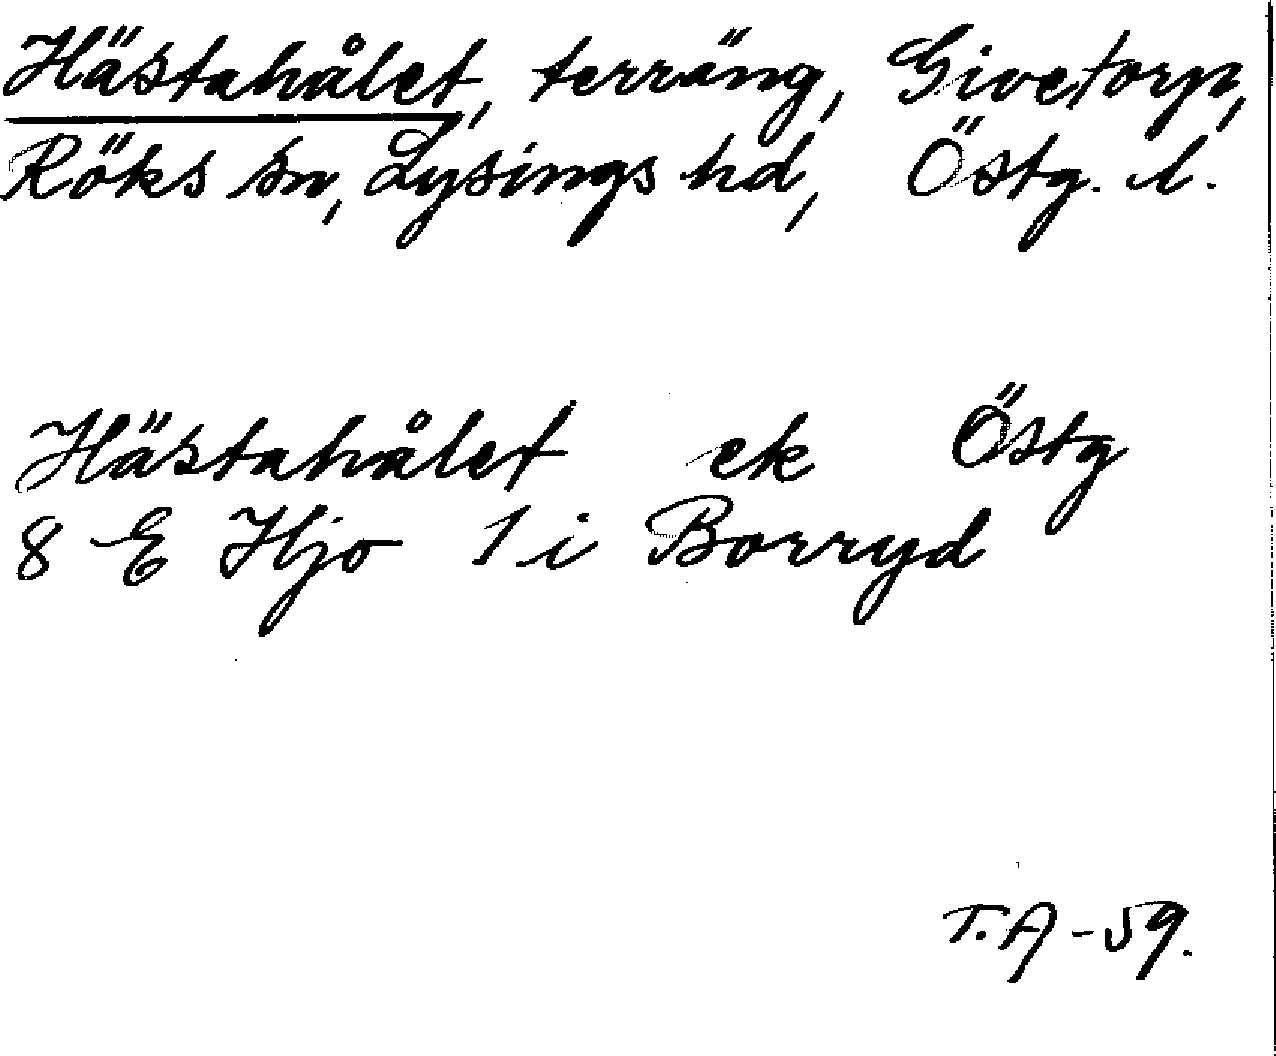 Hästahålet, terräng, Givetorp,
Röks sn, Lysings hd, Östg. l.
Hästahålet ek Östg
8 E Hjo 1 i Borryd
T. A - 59.